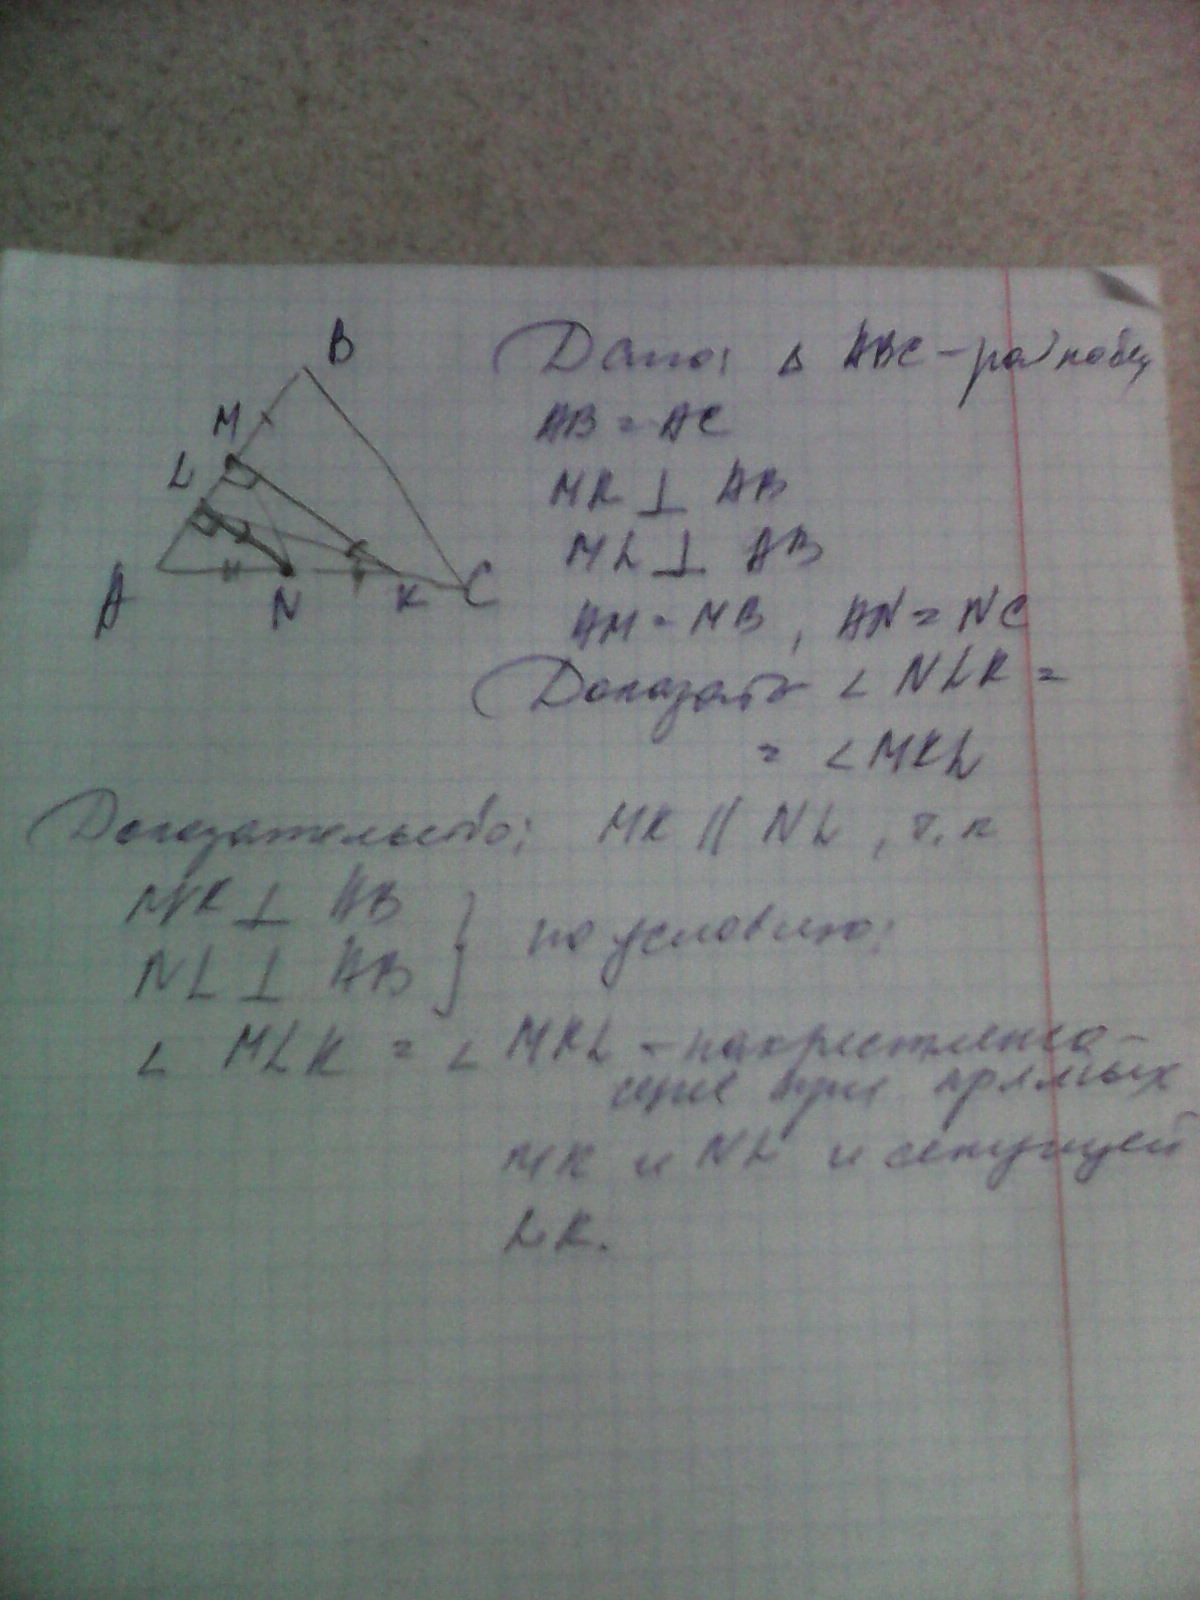 B
M
L
A
N
K
C
Дано: Δ ABC – равнобед
AB = AC
MK ⊥ AB
ML ⊥ AB
AM = MB, AN = NC
Доказать ∠ NLK =
= ∠ MKL
Доказательство: MK || NL, т.к
MK ⊥ AB
NL ⊥ AB } по условию;
∠ MLK = ∠ MKL – накрестлежа-
щие при прямых
MK и NL и секущей
LK.